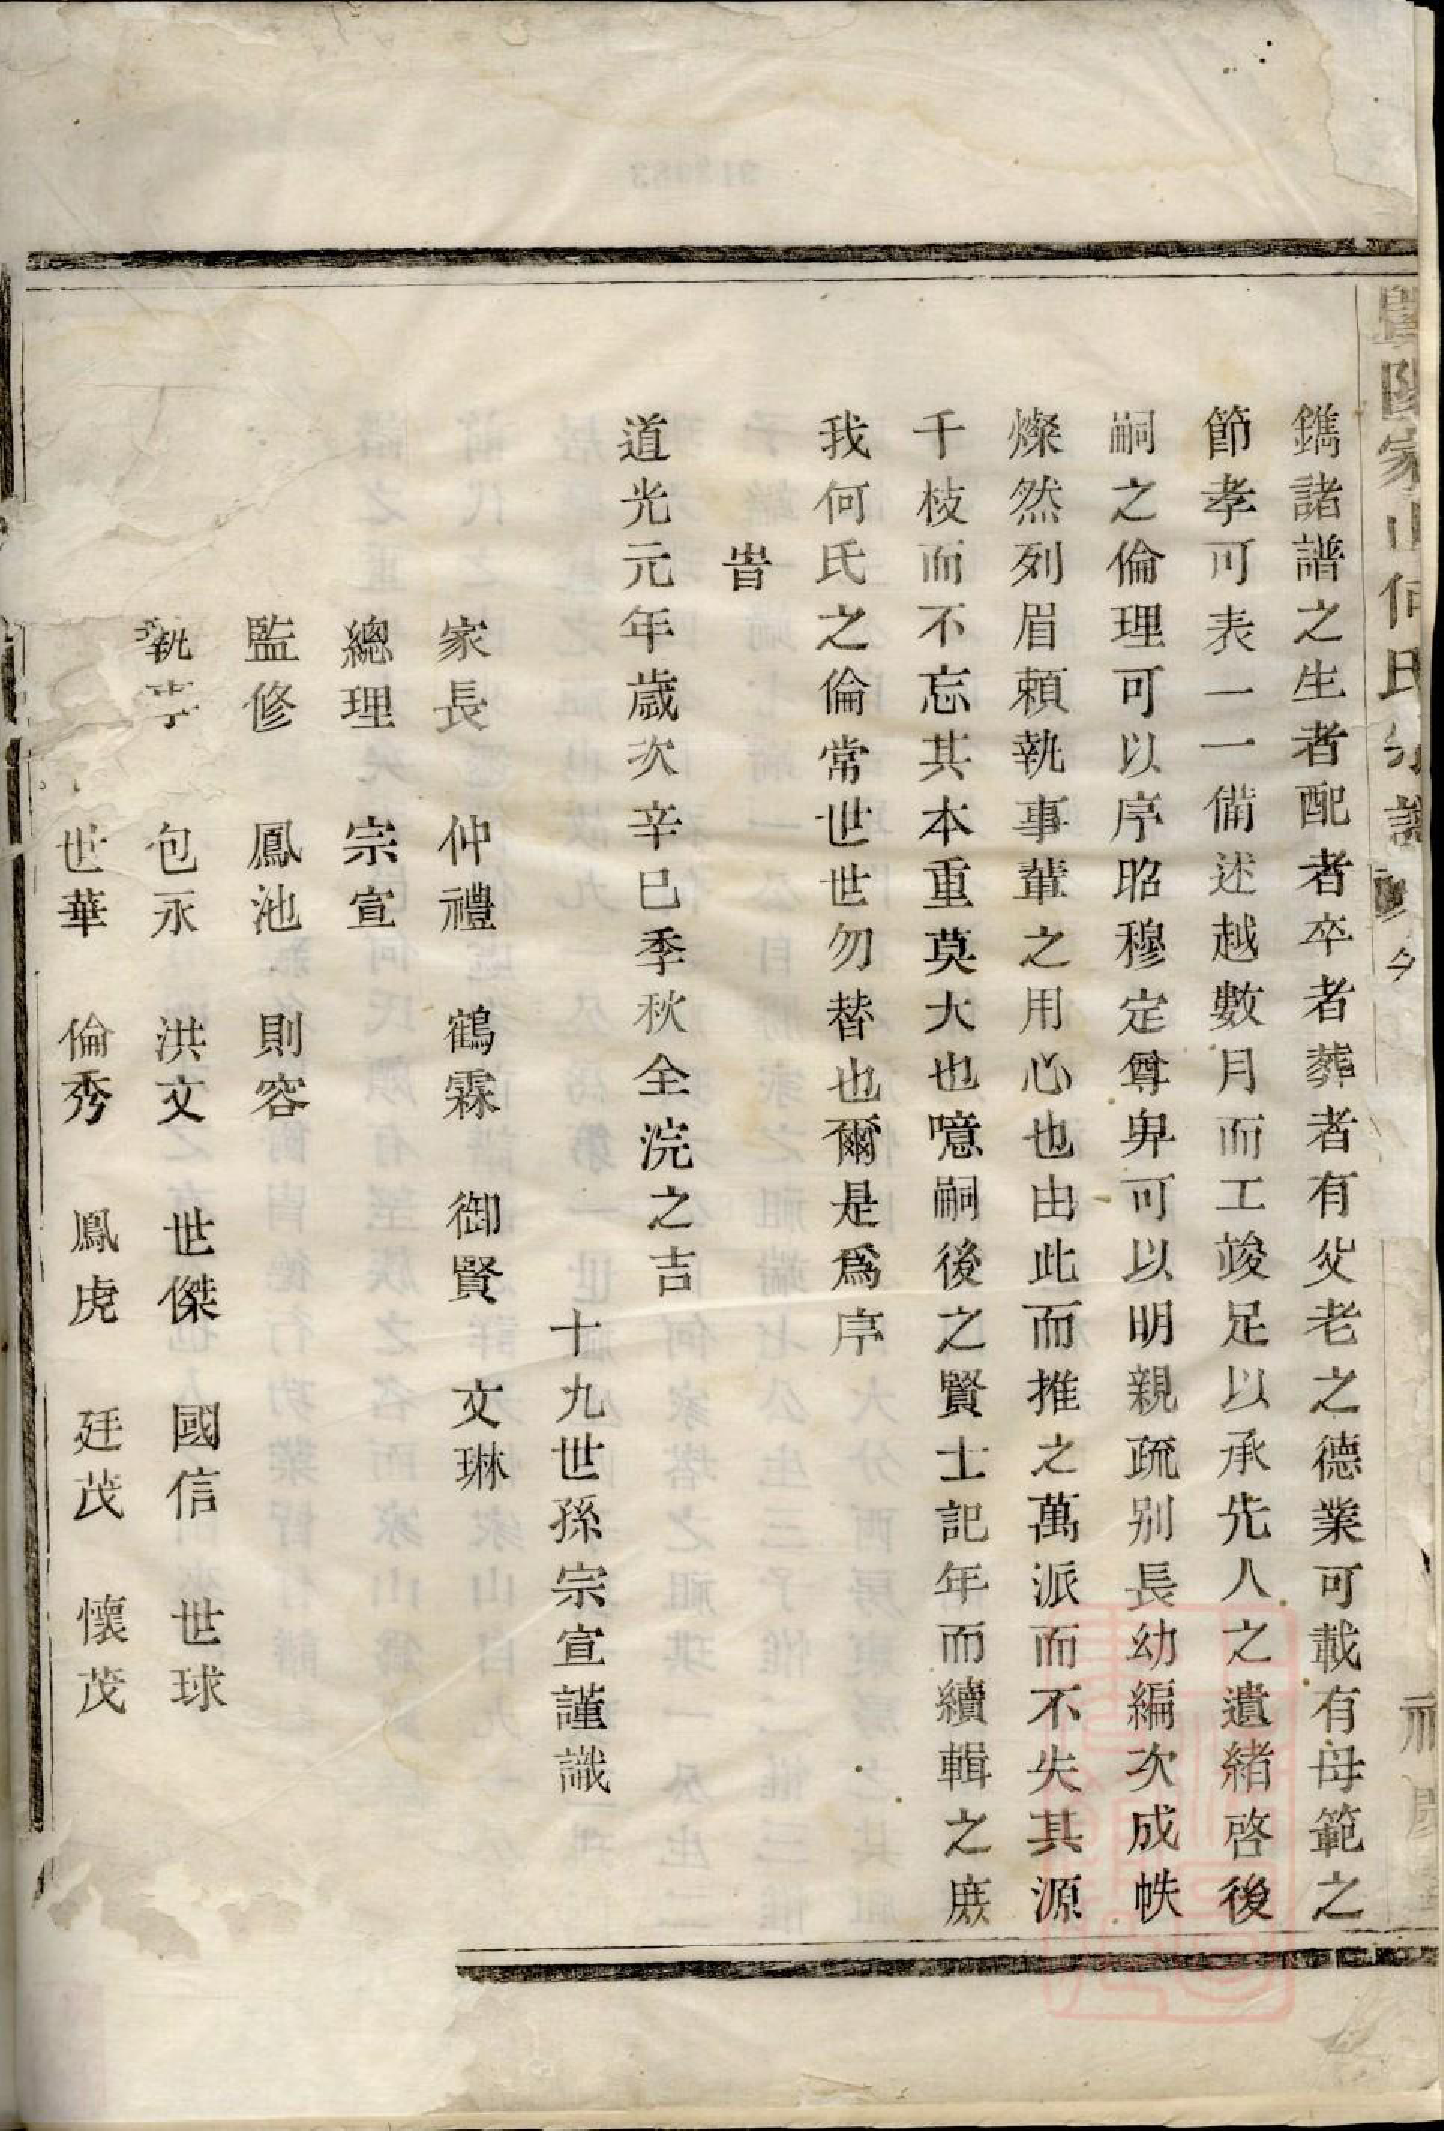 鐫諸譜之生者配者卒者葬者有父老之德業可載有母範之
節孝可表一一備述越數月而工竣足以承先人之遺緒啓後
嗣之倫理可以序昭穆定尊卑可以明親疏别長幼編次成帙
燦然列眉賴執事輩之用心也由此而推之萬派而不失其源
千枝而不忘其本重莫大也噫嗣後之賢士記年而續輯之庶
我何氏之倫常世世勿替也爾是爲序
旹
道光元年歲次辛巳季秋全浣之吉
十九世孫宗宣謹識
家長 仲禮 鶴霖 御賢 文琳
總理 宗宣
監修 鳳池 則容
執事 包永 洪文 世傑 國信 世球
世華 倫秀 鳳虎 廷茂 懷茂
家山何氏宗譜